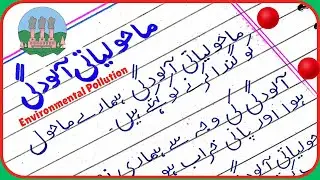 ماحولیاتی آلودگی
Environmental Pollution
ماحولیاتی آلودگی ہمارے ماحول
کو گندا کرنے کو کہتے ہیں۔
آلودگی کی وجہ سے ہماری
ہوا اور پانی خراب ہو
ماحولیاتی آلودگی